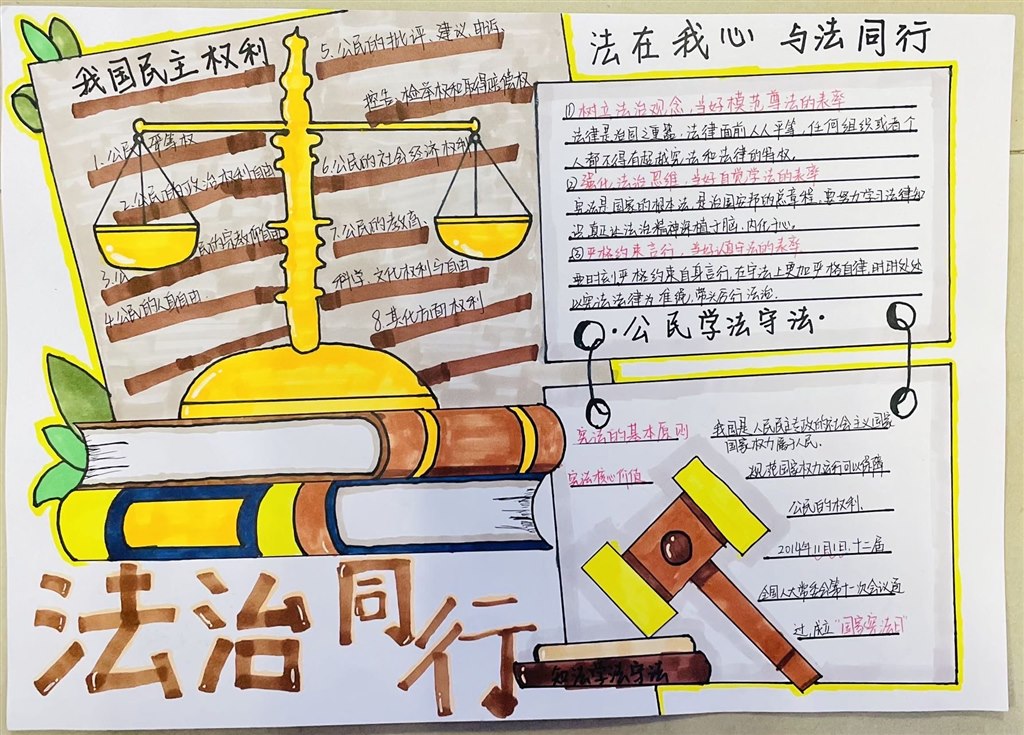 我国民主权利
1.公民 平等权
2.公民的政治权利自由
3.公 民的宗教 自由
4.公民的人身自由.
5.公民的批评、建议、申诉、
控告、检举权和取得赔偿权
6.公民的社会经济权利
7.公民的教育、
科学、文化权利与自由
8.其化方面权利
法在我心 与法同行
①树立法治观念,当好模范尊法的表率
法律是治国之重器.法律面前人人平等,任何组织或者个
人都不得有超越宪法和法律的特权。
②强化法治思维,当好自觉学法的表率
宪法是国家的根本法,是治国安邦的总章程,要努力学习法律知
识真正让法治精神 植于脑、内化于心。
③严格约束言行,当好遵守法的表率
要时刻严格约束自身言行,在守法上更加严格自律,时时处处
以宪法法律为准绳,带头厉行法治.
·公民学法守法·
宪法的基本原则
宪法核心价值
我国是人民民主专政的社会主义国家
国家权力属于人民.
规范国家权力运行可以保障
公民的权利.
2014年11月1日.十二届
全国人大常委会第十一次会议通
过,成立“国家宪法日”
知法学法守法
法治同行